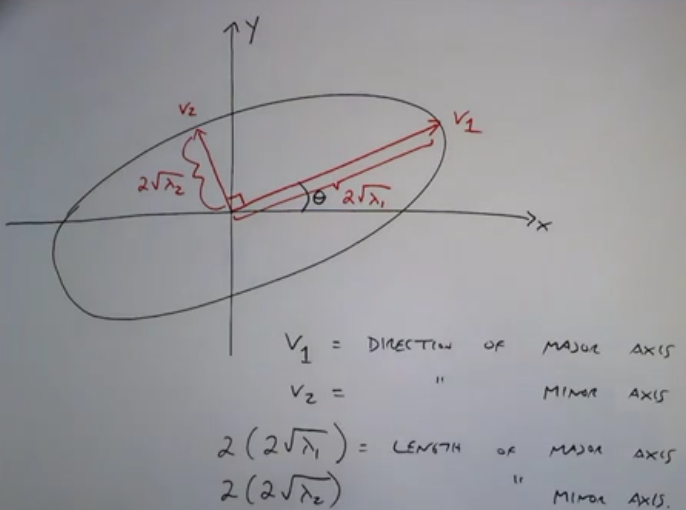 y
v2
V1
2√λ2
θ
2√λ1
x
V1 = DIRECTION OF MAJOR AXIS
V2 = " MINOR AXIS
2(2√λ1) = LENGTH OF MAJOR AXIS
2(2√λ2) " MINOR AXIS.